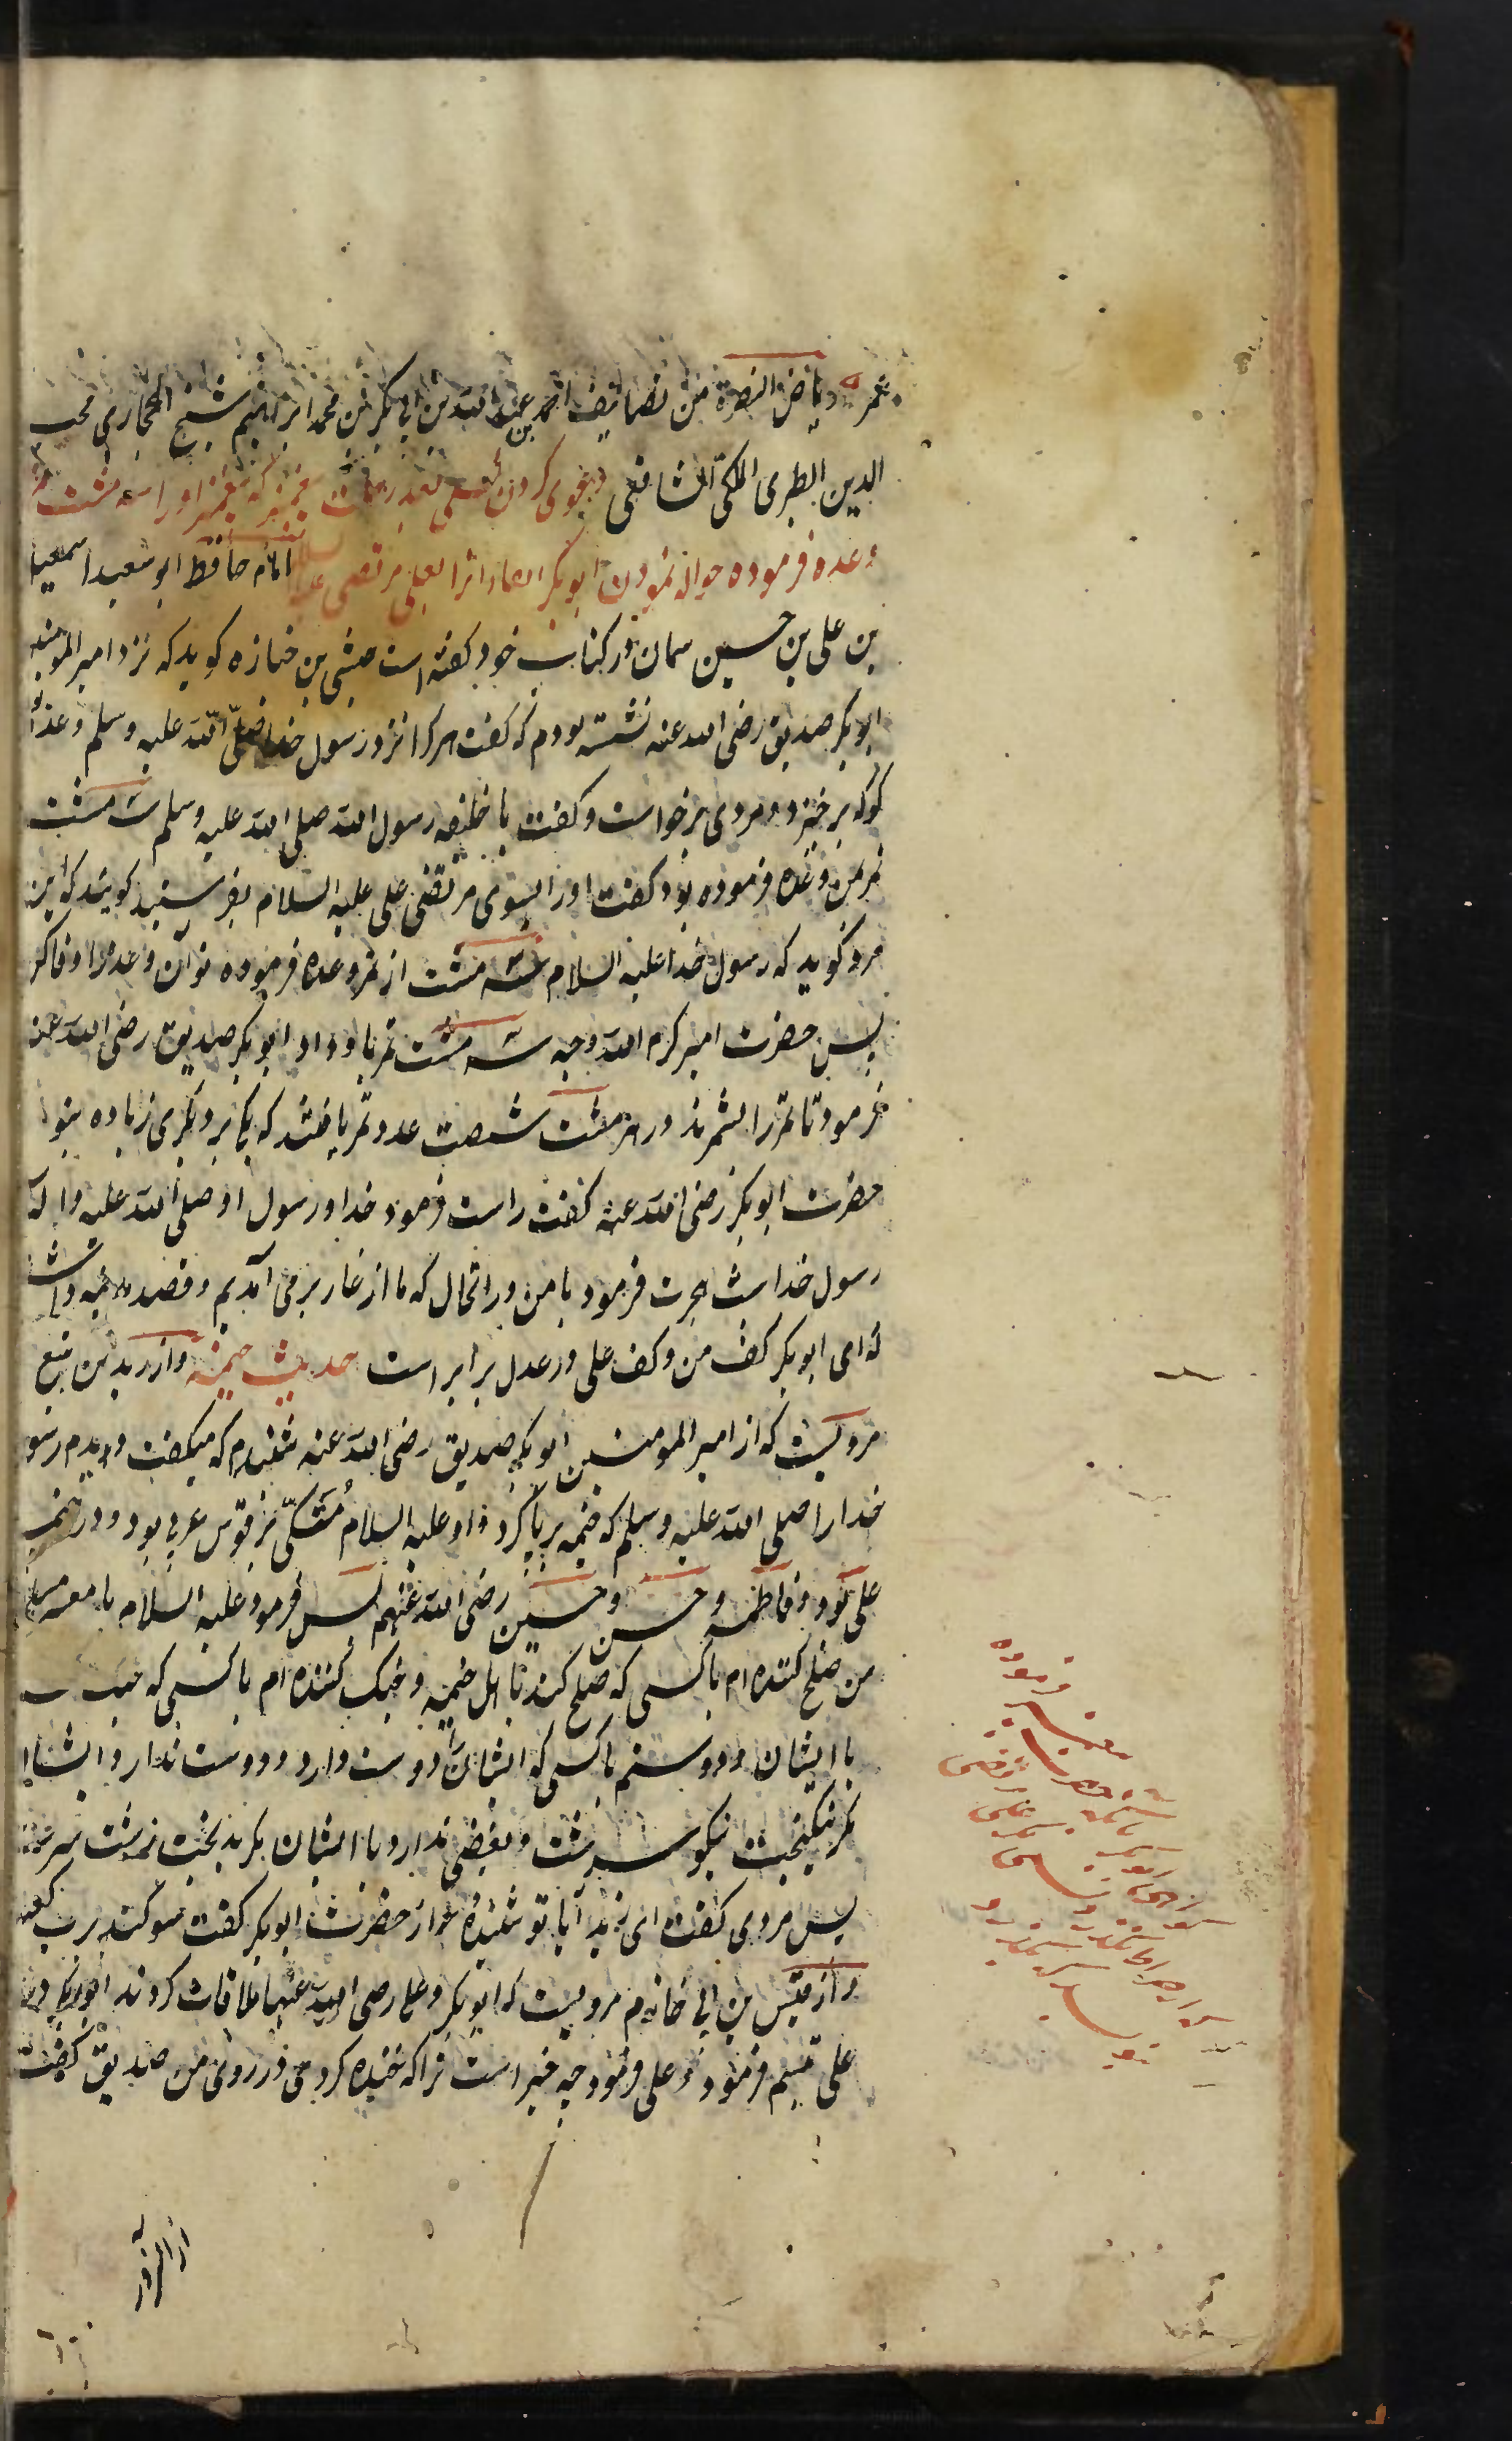 عمر ریاض النضرة من تصانیف احمد بن عبد الله بن ابی بکر بن محمد ابراهیم شیخ الحجازی محب
الدین الطبری المکی الشافعی دعوی کردن بعد رحلت پیغمبر که پیغمبر او را سه مشت تمر
وعده فرموده حواله نمودن ابوبکر بعلی مرتضی علیه السلام امام حافظ ابو سعید اسمعیل
بن علی بن حسین سمان در کتاب خود گفته است حبشی بن جناده گوید که نزد امیر المومنین
ابوبکر صدیق رضی الله عنه نشسته بودم که گفت هر کرا نزد رسول خدا صلی الله علیه وسلم وعده
گو که برخیزد مردی برخواست و گفت یا خلیفه رسول الله صلی الله علیه وسلم سه مشت
تمر بمن وعده فرموده بود گفت او را بسوی مرتضی علی علیه السلام بفرستید گویید که این
مرد گوید که رسول خدا علیه السلام سه مشت از تمر وعده فرموده تو آن وعده را وفا کن
پس حضرت امیر کرم الله وجهه سه مشت تمر باو داد ابوبکر صدیق رضی الله عنه
فرمود تا تمر را شمرند در هر مشت شصت عدد تمر یافتند که یکی بر دیگری زیاده نبود
حضرت ابوبکر رضی الله عنه گفت راست فرمود خدا و رسول او صلی الله علیه واله
رسول خدا شب هجرت فرمود با من در انحال که ما از غار بر می آمدیم و قصد مدینه داشت
که ای ابوبکر کف من و کف علی در عدل برابر است حدیث خیمه و از زید بن یثیع
مرویست که از امیر المومنین ابوبکر صدیق رضی الله عنه شنیدم که میگفت دیدم رسول
خدا را صلی الله علیه وسلم که خیمه بر پا کرد و او علیه السلام متکی بر قوس عربی بود و در خیمه
علی بود و فاطمه و حسن و حسین رضی الله عنهم پس فرمود علیه السلام یا معشر مسلمین
من صلح کننده ام با کسی که صلح کند با اهل خیمه و جنگ کننده ام با کسی که جنگ
با ایشان و دوستم با کسی که ایشان را دوست دارد و دوست ندارد ایشان را
مگر نیکبخت نیکو سرشت و بغض ندارد با ایشان مگر بدبخت زشت سرشت
پس مردی گفت ای زید آیا تو شنیده از حضرت ابوبکر گفت سوگند برب کعبه
و از قیس بن ابی حازم مرویست که ابوبکر و علی رضی الله عنهما ملاقات کردند ابوبکر در
علی تبسم فرمود و علی فرمود چه خبر است ترا که خنده کردی در روی من صدیق گفت
فرموده
پیغمبر